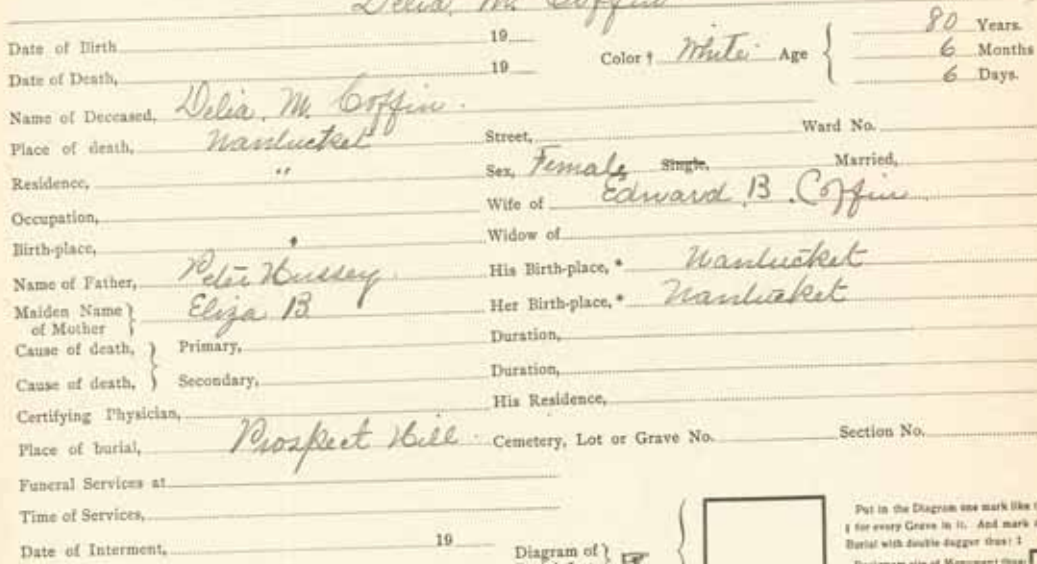 Delia. M. Coffin
Date of Birth 19 Color † White Age { 80 Years.
Date of Death, 19 6 Months
6 Days.
Name of Deceased, Delia. M. Coffin.
Place of death, Nantucket Street, Ward No.
Residence, " Sex, Female Single, Married,
Occupation, Wife of Edward. B. Coffin
Birth-place, " Widow of
Name of Father, Peter Hussey. His Birth-place, * Nantucket
Maiden Name of Mother } Eliza B Her Birth-place, * Nantucket
Cause of death, } Primary, Duration,
Cause of death, } Secondary, Duration,
Certifying Physician, His Residence,
Place of burial, Prospect Hill. Cemetery, Lot or Grave No. Section No.
Funeral Services at
Time of Services,
Date of Interment, 19 Diagram of } ☞ {
Put in the Diagram one mark like
for every Grave in it. And mark
Burial with double dagger thus: ‡